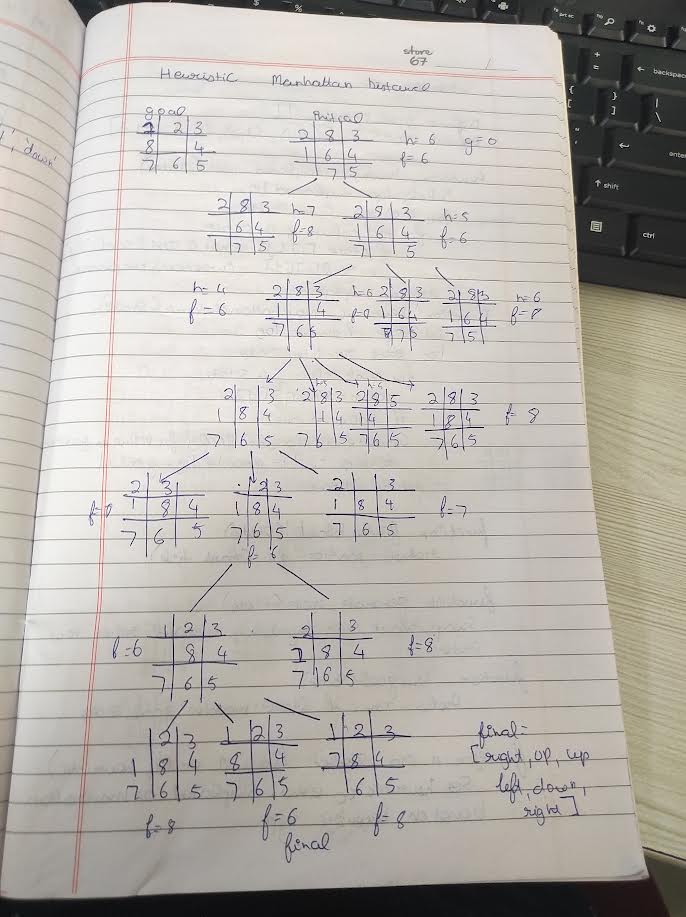 store
67
Heuristic Manhattan Distance
goal
Initial
1 2 3
8 4
7 6 5
2 8 3
1 6 4
7 5
h=6 g=0
f=6
2 8 3
6 4
1 7 5
h=7
f=8
2 8 3
1 6 4
7 5
h=5
f=6
h=4
f=6
2 8 3
1 4
7 6 5
2 8 3
1 6 4
h=6
f=8
2 8 3
1 6 4
7 5
2 3
1 8 4
7 6 5
2 8 3
1 4
7 6 5
2 8 5
1 4
7 6 5
2 8 3
1 8 4
7 6 5
f= 8
2 3
1 8 4
7 6 5
1 2 3
1 8 4
7 6 5
f= 6
2 3
1 8 4
7 6 5
f=7
f=6
1 2 3
8 4
7 6 5
2 3
1 8 4
7 6 5
f=8
2 3
1 8 4
7 6 5
f=8
1 2 3
8 4
7 6 5
f=6
final
1 2 3
7 8 4
6 5
f=8
final=
[right, up, up
left, down,
right]
backspace
enter
shift
ctrl